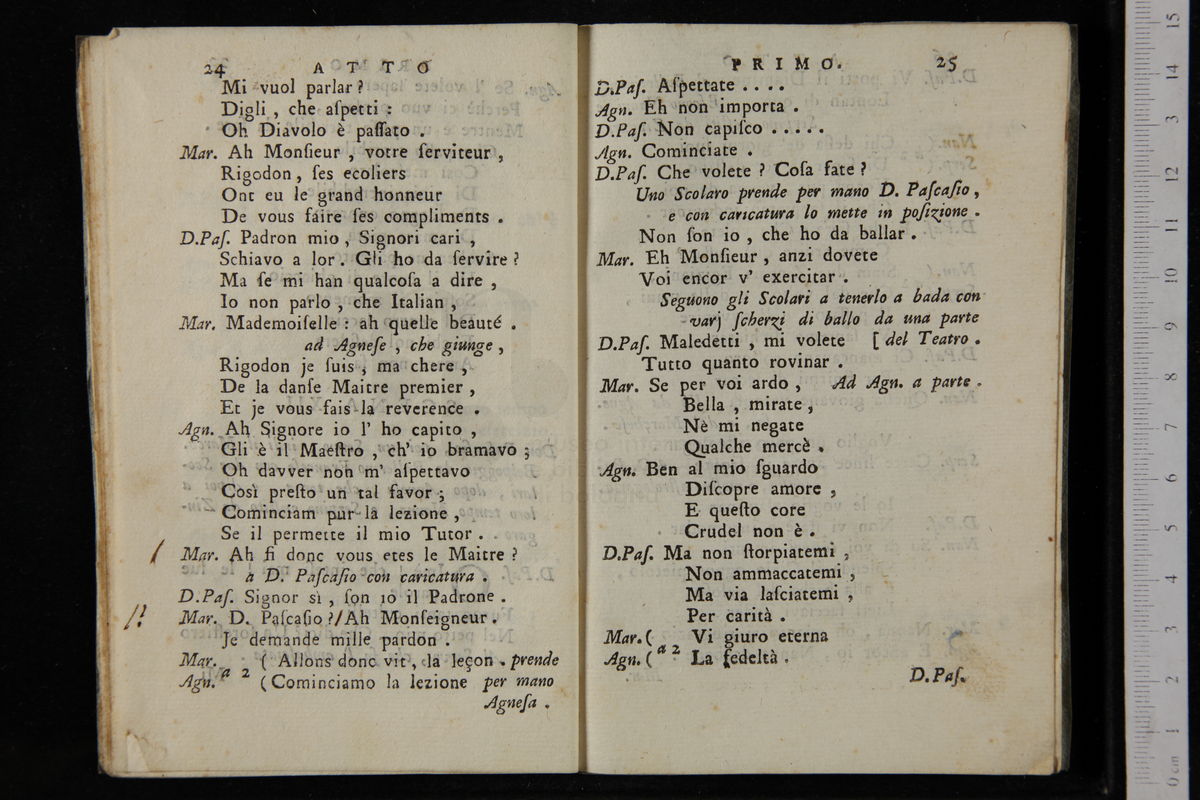 24 ATTO
Mi vuol parlar?
Digli, che aſpetti:
Oh Diavolo è paſſato.
Mar. Ah Monſieur, votre ſerviteur,
Rigodon, ſes ecoliers
Ont eu le grand honneur
De vous faire ſes compliments.
D.Paſ. Padron mio, Signori cari,
Schiavo a lor. Gli ho da ſervire?
Ma ſe mi han qualcoſa a dire,
Io non parlo, che Italian,
Mar. Mademoiſelle: ah quelle beauté.
ad Agneſe, che giunge,
Rigodon je ſuis, ma chere,
De la danſe Maitre premier,
Et je vous fais la reverence.
Agn. Ah Signore io l' ho capito,
Gli è il Maeſtro, ch' io bramavo;
Oh davver non m' aſpettavo
Così preſto un tal favor;
Cominciam pur la lezione,
Se il permette il mio Tutor.
Mar. Ah ſi donc vous etes le Maitre?
a D. Paſcaſio con caricatura.
D.Paſ. Signor sì, ſon io il Padrone.
Mar. D. Paſcaſio?/Ah Monſeigneur.
Je demande mille pardon.
Mar. ( Allons donc vit, la leçon. prende
Agn. a 2 (Cominciamo la lezione per mano
Agneſa.
PRIMO. 25
D.Paſ. Aſpettate....
Agn. Eh non importa.
D.Paſ. Non capiſco.....
Agn. Cominciate.
D.Paſ. Che volete? Coſa fate?
Uno Scolaro prende per mano D. Paſcaſio,
e con caricatura lo mette in poſizione.
Non ſon io, che ho da ballar.
Mar. Eh Monſieur, anzi dovete
Voi encor v' exercitar.
Seguono gli Scolari a tenerlo a bada con
varj ſcherzi di ballo da una parte
D.Paſ. Maledetti, mi volete [ del Teatro.
Tutto quanto rovinar.
Mar. Se per voi ardo, Ad Agn. a parte.
Bella, mirate,
Nè mi negate
Qualche mercè.
Agn. Ben al mio ſguardo
Diſcopre amore,
E queſto core
Crudel non è.
D.Paſ. Ma non ſtorpiatemi,
Non ammaccatemi,
Ma via laſciatemi,
Per carità.
Mar. ( Vi giuro eterna
Agn. ( a 2 La fedeltà.
D.Paſ.